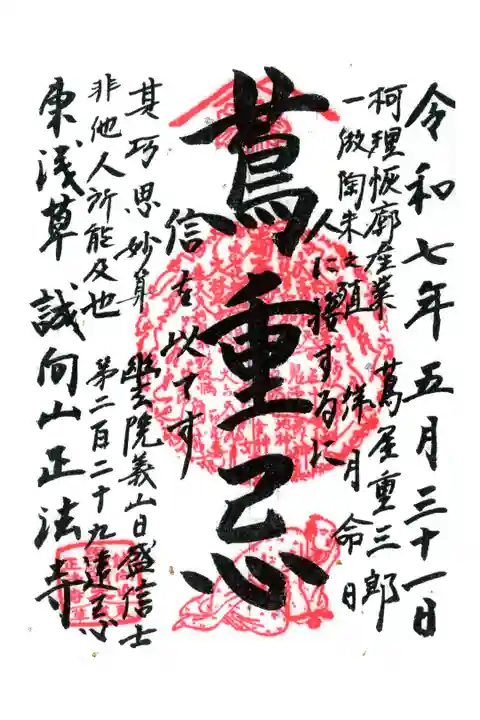 令和七年五月三十一日
柯理恢廓産業
一倣陶朱之殖
蔦屋重三郎
祥月命日
人に接するに
蔦重忌
信を以てす
其巧思妙算
非他人所能及也
幽玄院義山日盛信士
第二百二十九遠忌
東浅草 誠向山正法寺